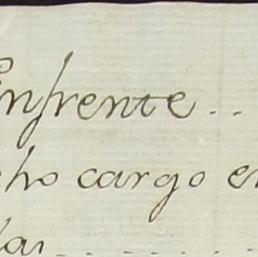 Enfrente..
cho cargo e
las